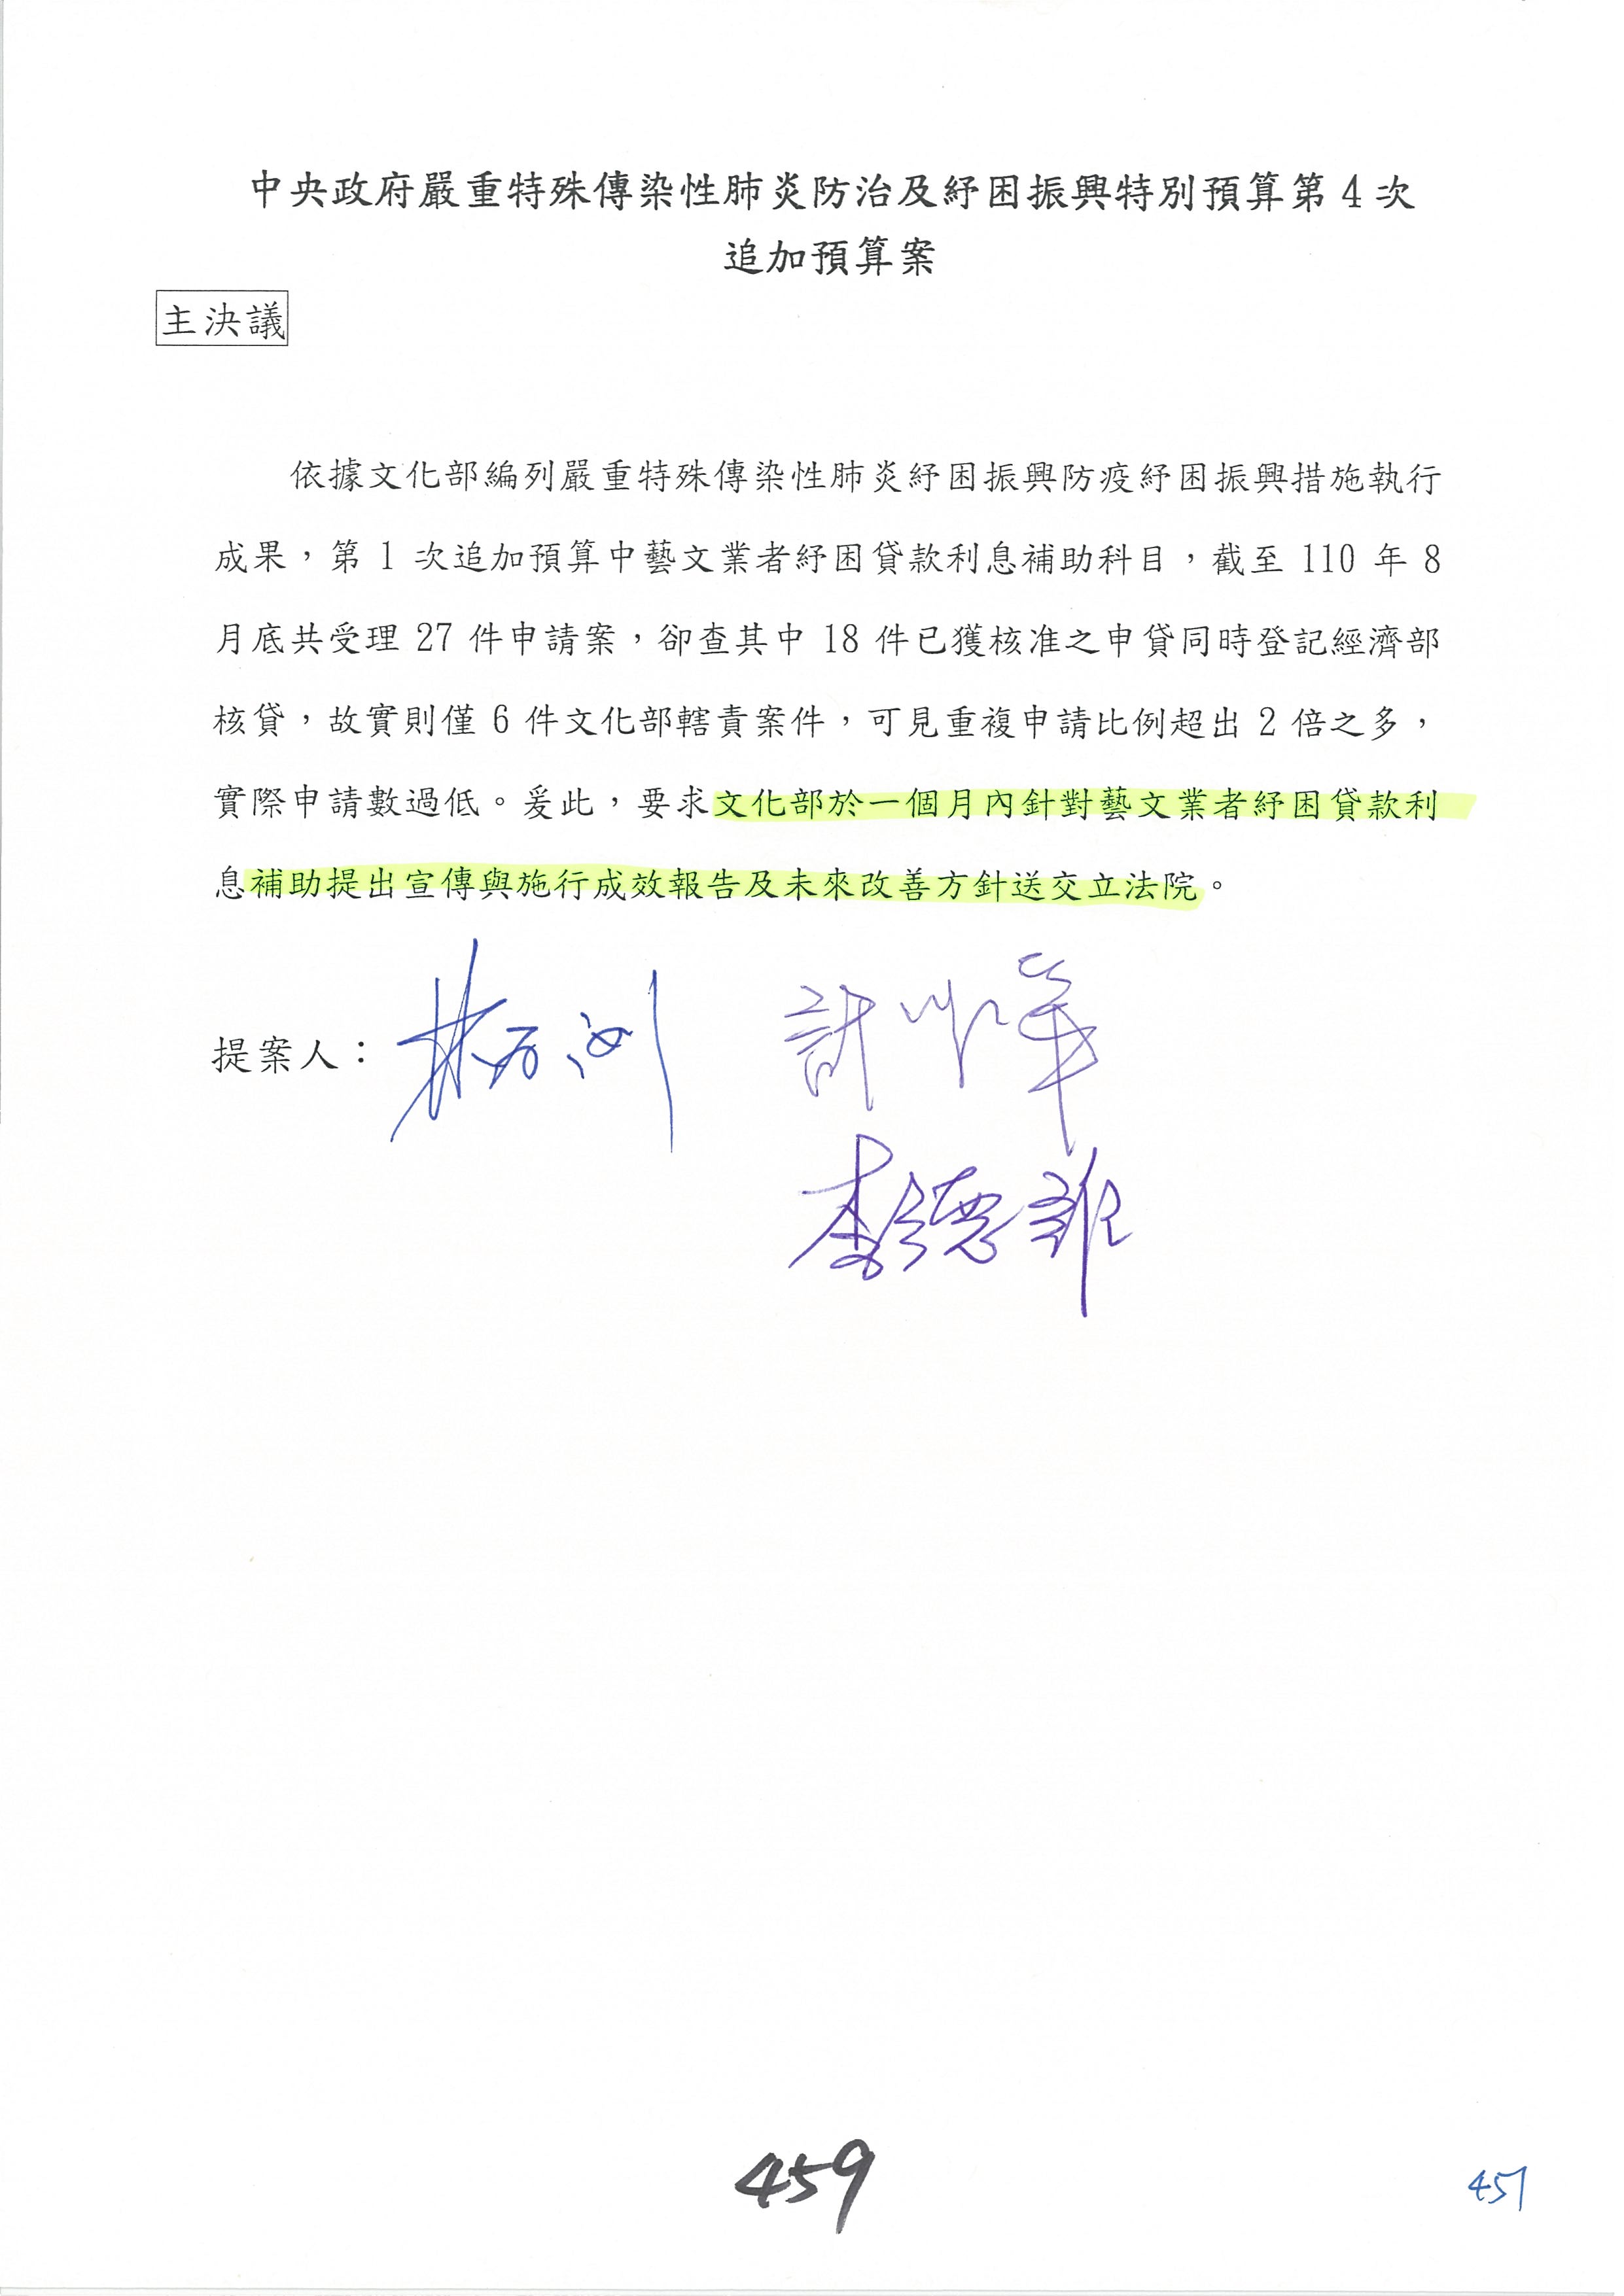 中央政府嚴重特殊傳染性肺炎防治及紓困振興特別預算第 4 次
追加預算案
主決議
依據文化部編列嚴重特殊傳染性肺炎紓困振興防疫紓困振興措施執行
成果，第 1 次追加預算中藝文業者紓困貸款利息補助科目，截至 110 年 8
月底共受理 27 件申請案，卻查其中 18 件已獲核准之申貸同時登記經濟部
核貸，故實則僅 6 件文化部轄責案件，可見重複申請比例超出 2 倍之多，
實際申請數過低。爰此，要求文化部於一個月內針對藝文業者紓困貸款利
息補助提出宣傳與施行成效報告及未來改善方針送交立法院。
提案人：
李德維
459
457